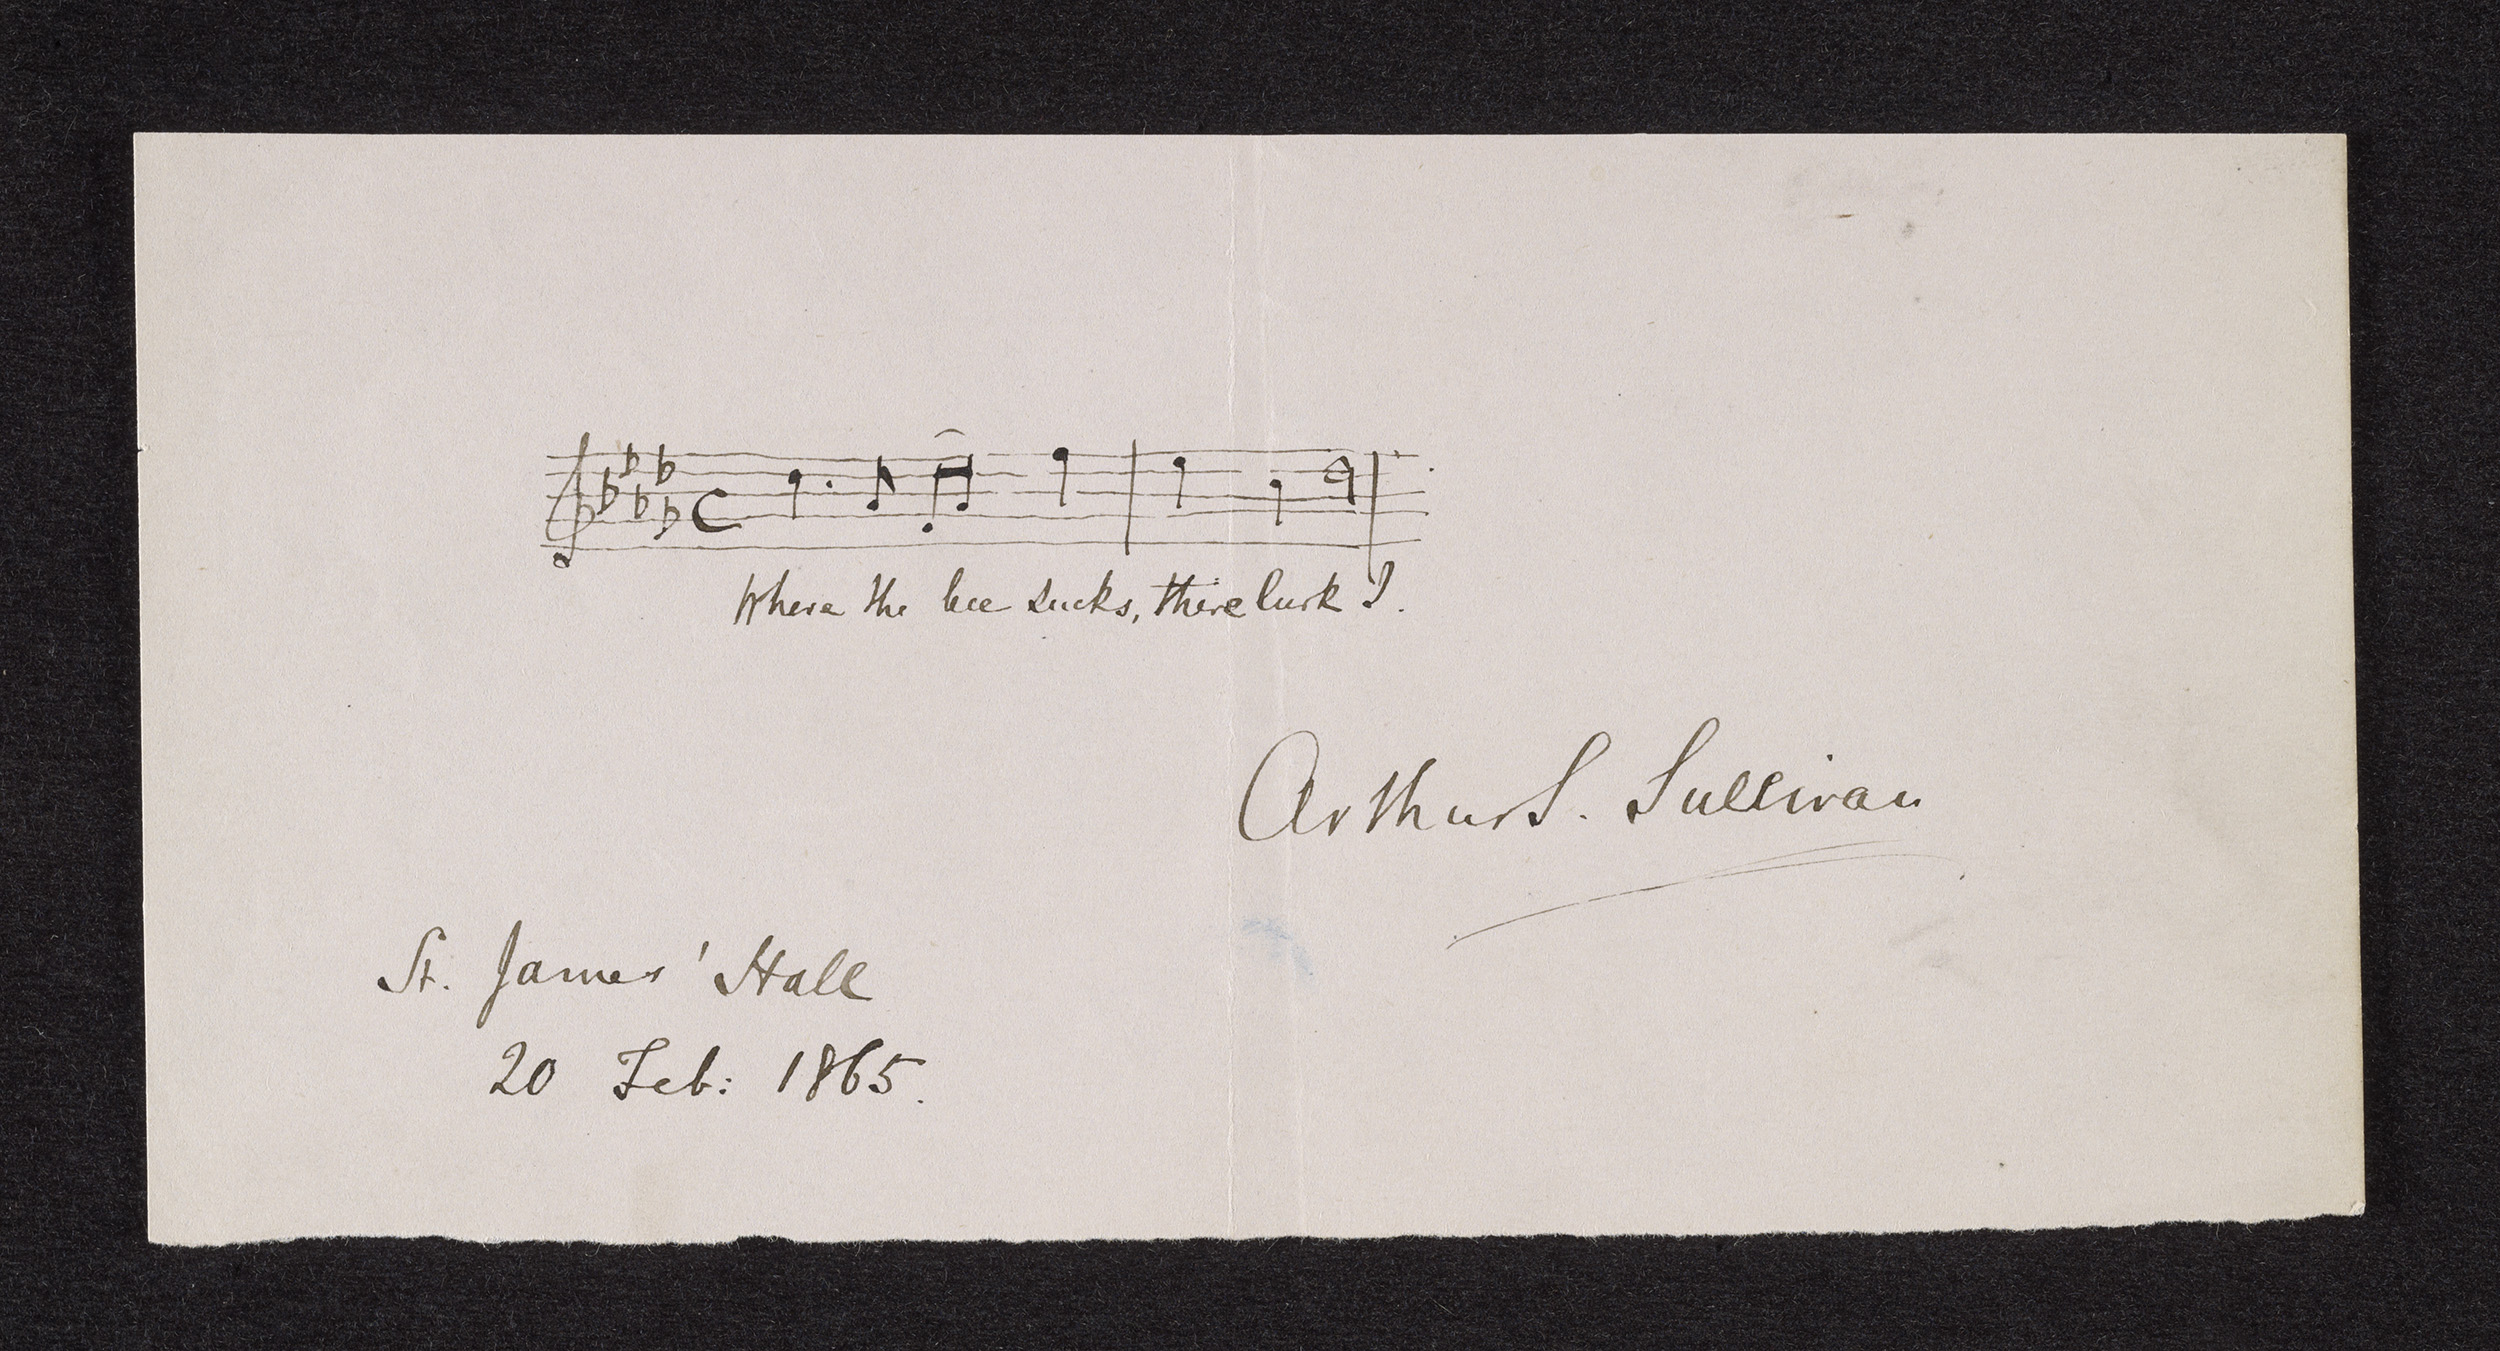 Where the bee sucks, there lurk I.
Arthur S. Sullivan
St. James' Hall
20 Feb: 1865.